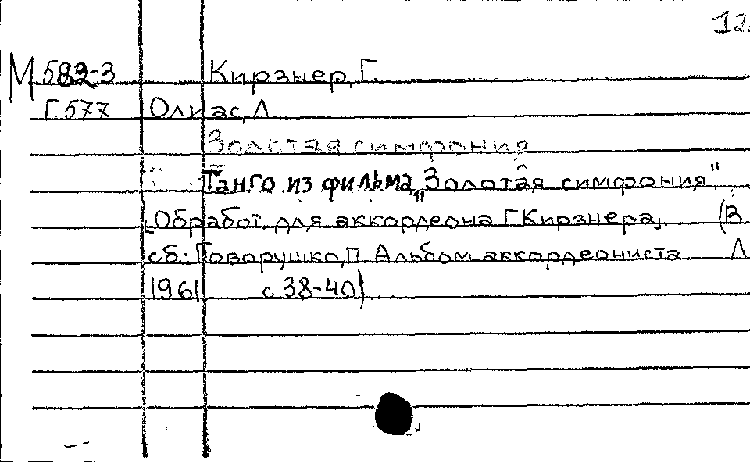 12
М 582-3 Кирзнер, Г.
Г.577 Олиас, Л
Золотая симфония
Танго из фильма „Золотая симфония"
[Обработ. для аккордеона Г. Кирзнера, (В
сб: Говорушко, П. Альбом аккордеониста Л
1961 с 38-40)